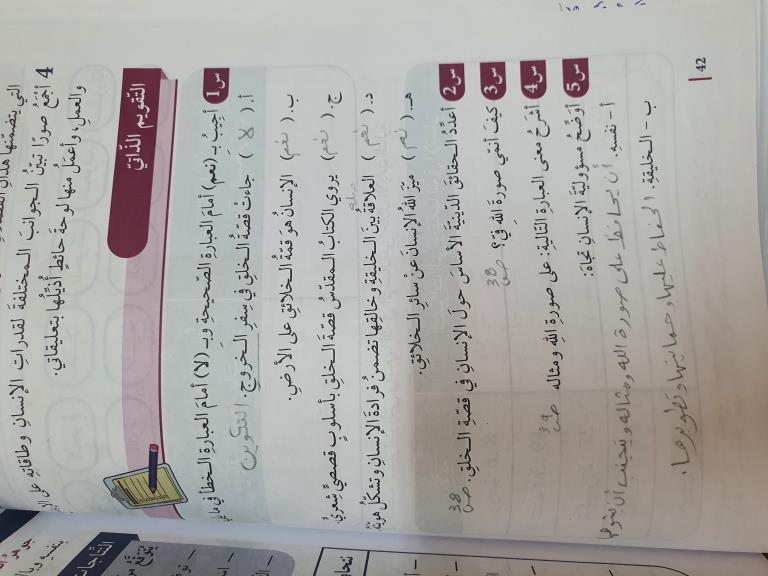 التي يتضمنها هذا
4 أجمع صورًا تبيّن الجوانب المختلفة لقدرات الإنسان وطاقاته على
والعمل، وأعمل منها لوحة حائط أذيّلها بتعليقاتي.
التقويم الذاتي
س1 أجيب بـ (نعم) أمام العبارة الصحيحة وبـ (لا) أمام العبارة الخطأ في ما
أ. ( لا ) جاءت قصّة الخلق في سفر الخروج. التكوين
ب. ( نعم ) الإنسان هو قمّة الخلائق على الأرض.
ج. ( نعم ) يروي الكتاب المقدّس قصّة الخلق بأسلوب قصصيّ شعريّ.
صلة
د. ( نعم ) العلاقة بين الخليقة وخالقها تضمن فرادة الإنسان وتشكّل هويّته
هـ. ( نعم ) ميّز الله الإنسان عن سائر الخلائق.
س2 أعدّد الحقائق الدّينيّة الأساس حول الإنسان في قصّة الخلق. ص 38
س3 كيف أنمّي صورة الله فيّ؟ ص 38
س4 أشرح معنى العبارة التّالية: على صورة الله ومثاله ص 39
س5 أوضّح مسؤوليّة الإنسان تجاه:
أ - نفسه. أن يحافظ على صورة الله ومثاله ويتجنب أن
ب - الخليقة. الحفاظ عليها وحمايتها وتطويرها.
42
النتاجات